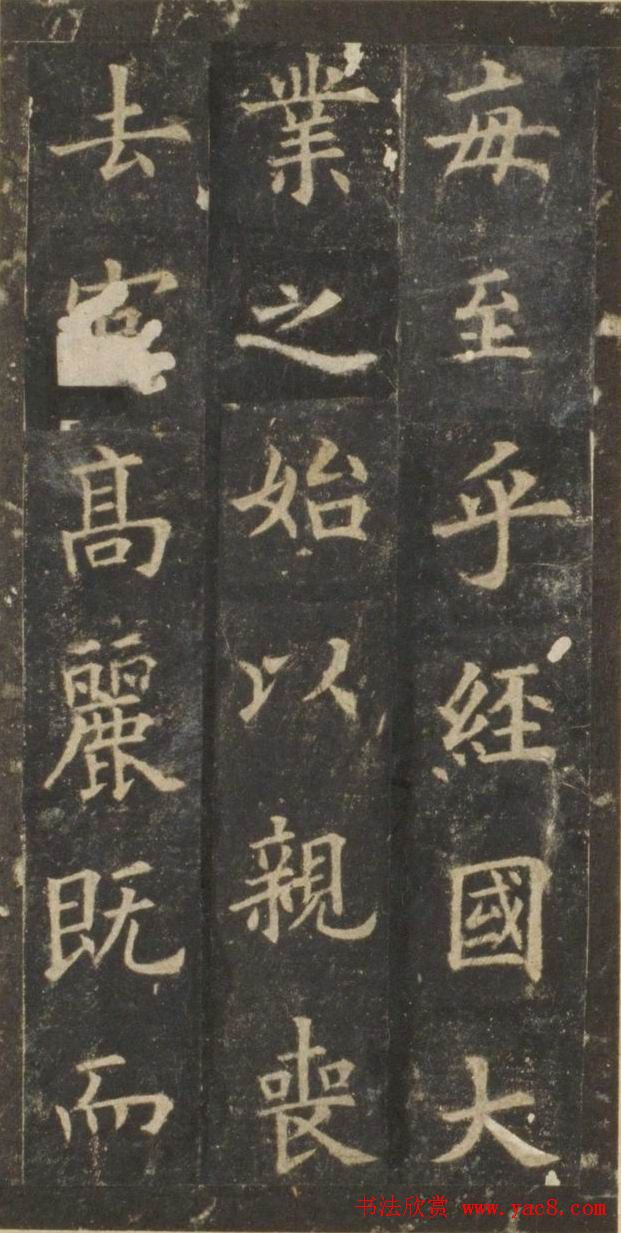 每至乎經國大
業之始以親喪
去官高麗既而
书法欣赏 www.yac8.com